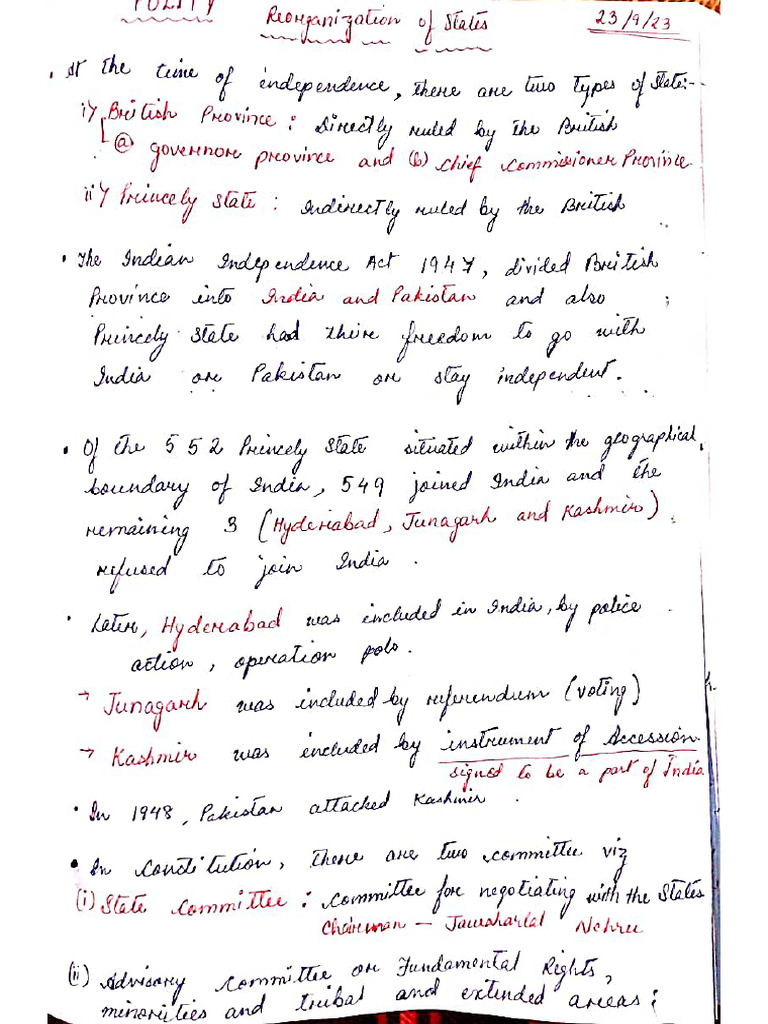 POLITY
Reorganization of States
23/9/23
• At the time of independence, there are two types of State:-
i) British Province : Directly ruled by the British
ⓐ governor province and (b) Chief Commissioner Province
ii) Princely State : Indirectly ruled by the British
• The Indian Independence Act 1947, divided British
Province into India and Pakistan and also ;
Princely State had their freedom to go with
India or Pakistan or stay independent.
• Of the 552 Princely State situated within the geographical
boundary of India, 549 joined India and the
remaining 3 (Hyderabad, Junagarh and Kashmir)
refused to join India .
• Later, Hyderabad was included in India, by police
action, operation polo.
→ Junagarh was included by referendum (voting)
→ Kashmir was included by instrument of Accession
signed to be a part of India
• In 1948, Pakistan attacked Kashmir .
• In Constitution, there are two committee viz
(i) State Committee : Committee for negotiating with the States
Chairman – Jawaharlal Nehru
(ii) Advisory Committee on Fundamental Rights,
minorities and tribal and extended areas ;